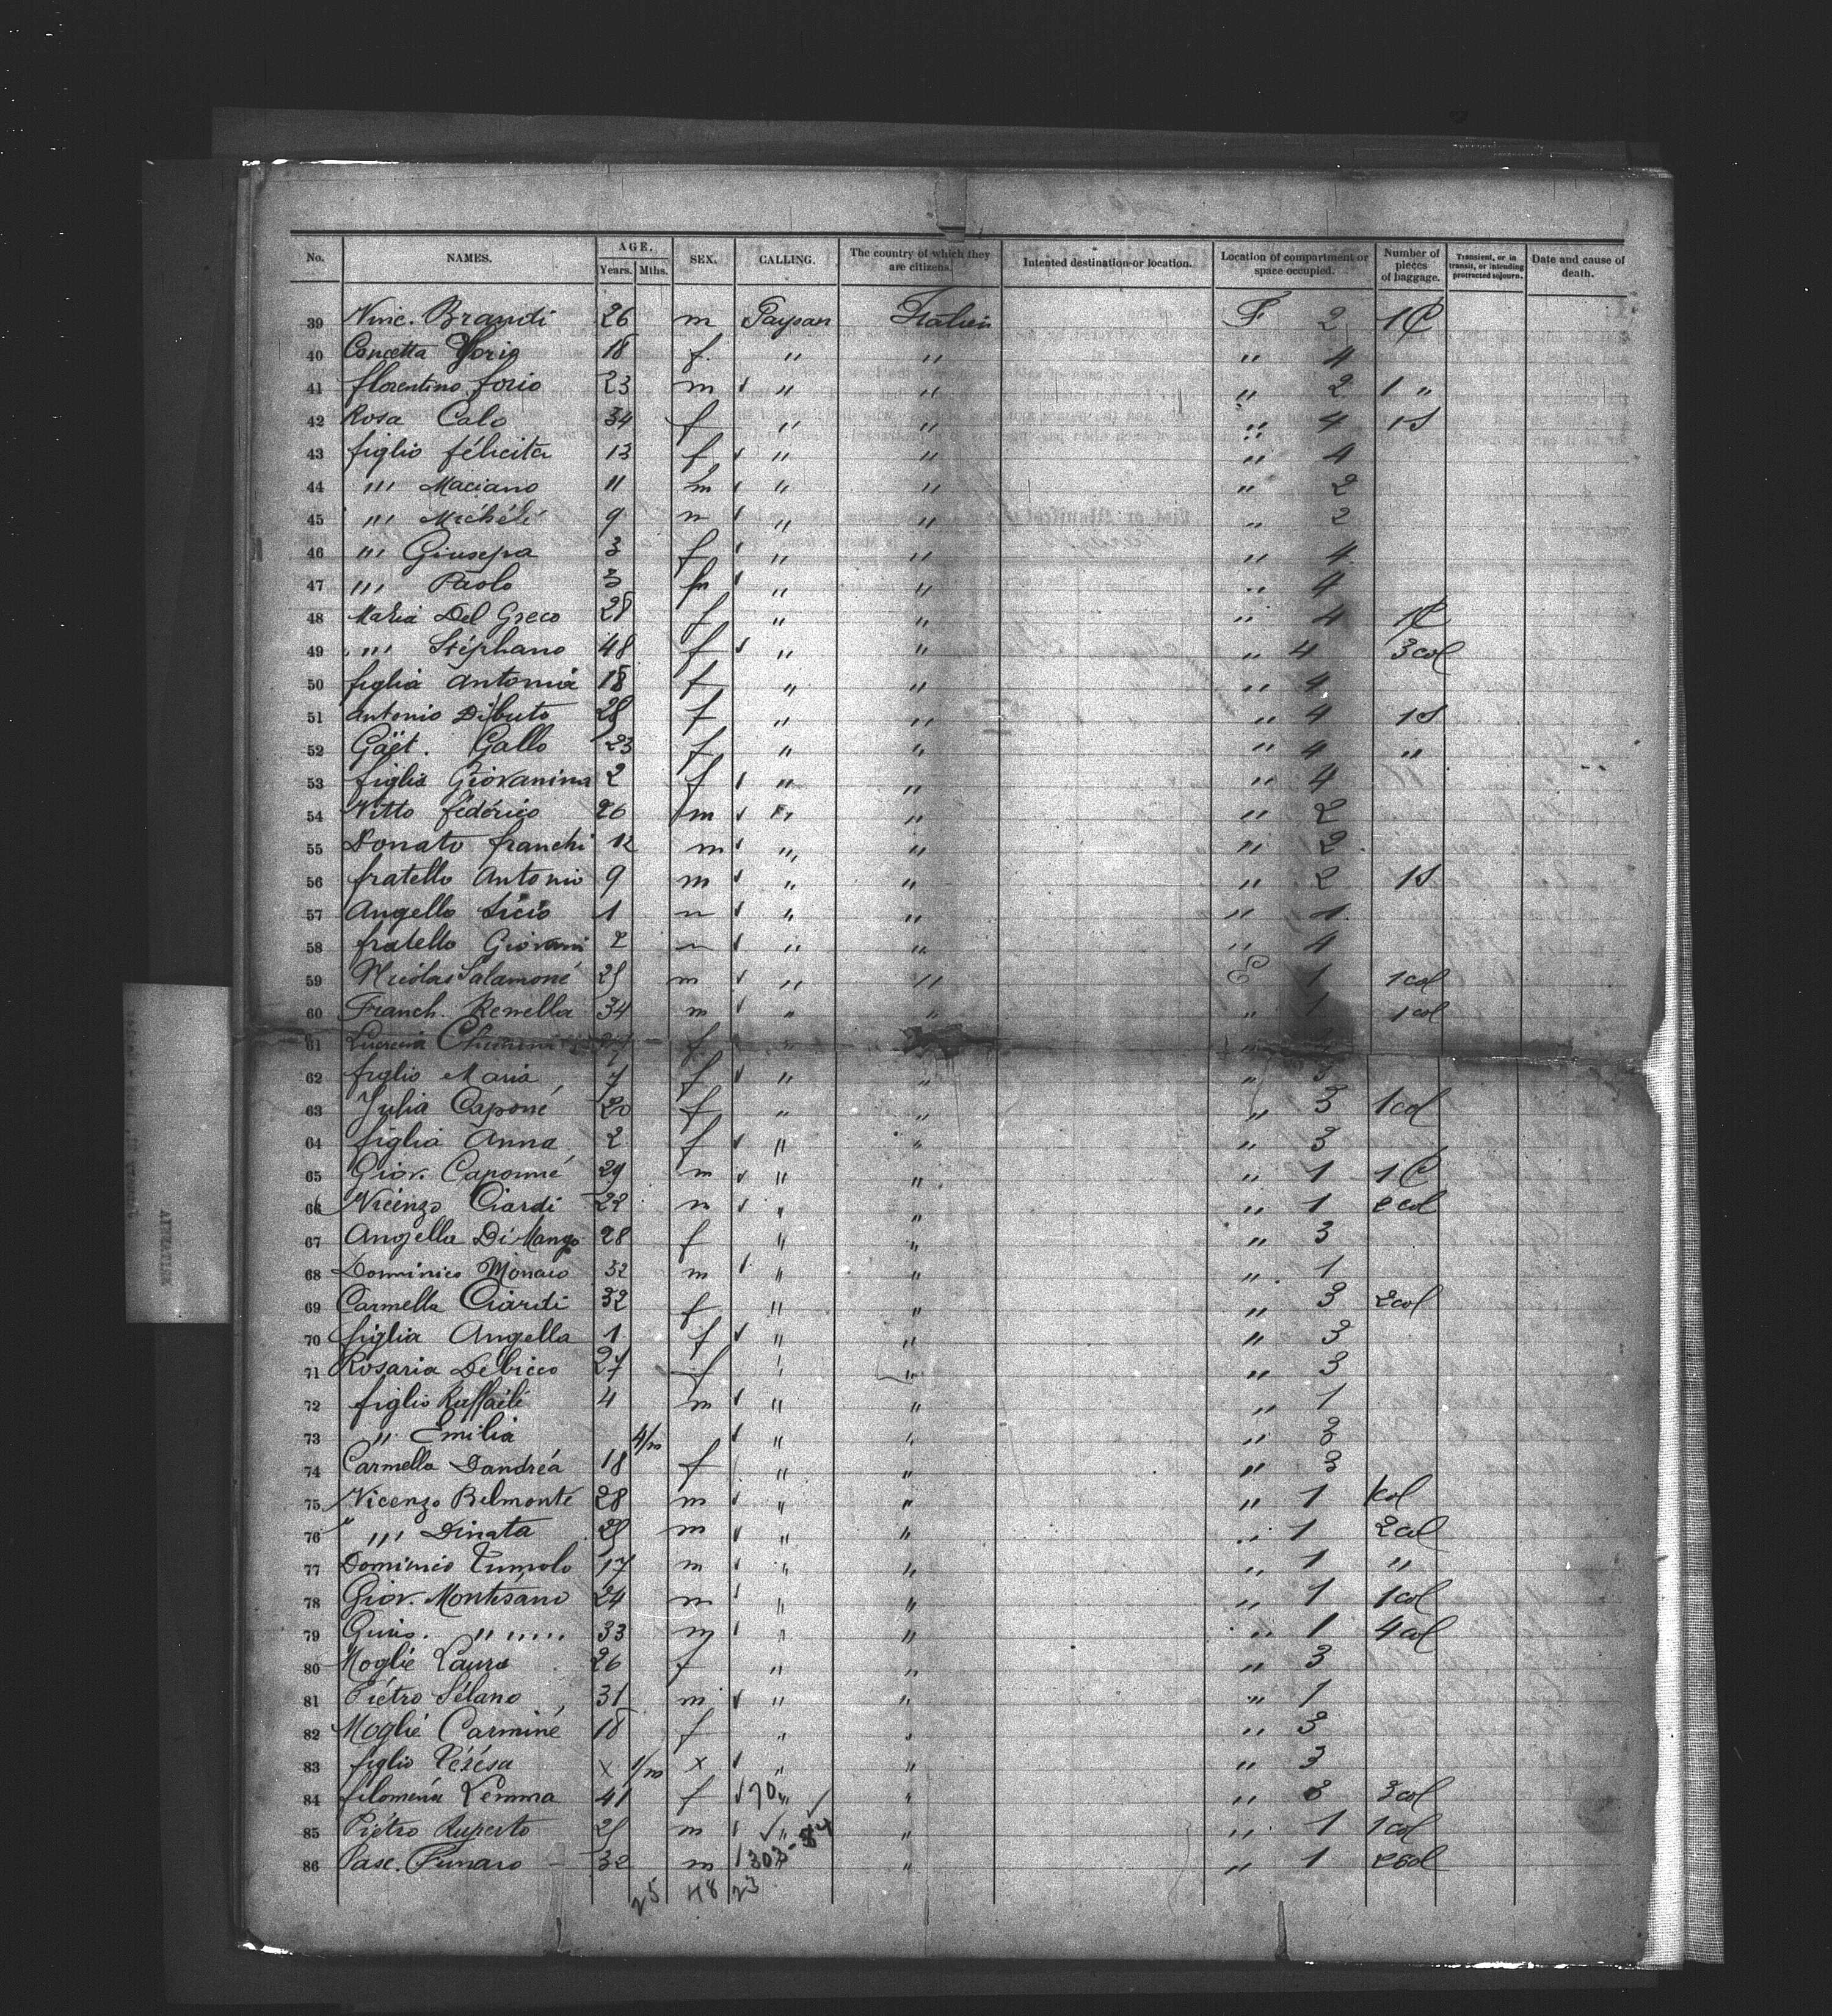 No. NAMES. AGE. Years. Mths. SEX. CALLING. The country of which they are citizens. Intented destination or location. Location of compartment or space occupied. Number of pieces of baggage. Transient, or in transit, or intending protracted sojourn. Date and cause of death.
39 Vinc. Brandi 26 m Paysan Italien F 2 1C
40 Concetta Yorio 18 f " " " 4
41 florentino forio 23 m " " " 2 1 "
42 Rosa Calo 34 f " " " 4 1S
43 figlio félicita 13 f " " " 4
44 " Maciano 11 m " " " 2
45 " Michéli 9 m " " " 2
46 " Giusepa 3 f " " " 4
47 " Paolo 3 m " " " 4
48 Maria Del Greco 28 f " " " 4 1C
49 " Stéphano 48 f " " " 4 3 col
50 figlia Antonia 18 f " " " 4
51 Antonio Dibuto 28 f " " " 4 1S
52 Gaët. Gallo 23 f " " " 4 "
53 figlia Giovanina 2 f " " " 4
54 Vitto fédérico 26 m " " " 2
55 Donato franchi 12 m " " " 2
56 fratello Antonio 9 m " " " 2 1S
57 Angello Licio 1 m " " " 1
58 fratello Giovani 2 m " " " 4
59 Nicolas Salamoné 25 m " " 1 1 col
60 Franch. Renella 34 m " " " 1 1 col
61 Lucrecia f " "
62 figlio Maria 7 f " " " 3
63 Julia Caponé 20 f " " " 3 1 col
64 figlia Anna 2 f " " " 3
65 Giov. Caponné 29 m " " " 1 1C
66 Vicenzo Ciardi 22 m " " " 1 2 col
67 Angella Di Mango 28 f " " " 3
68 Dominico Monaco 32 m " " " 1
69 Carmella Ciardi 32 f " " " 3 2 col
70 figlia Angella 1 f " " " 3
71 Rosaria Debicco 27 f " " " 3
72 figlio Raffaéli 4 m " " " 1
73 " Emilia 4/m " " " 3
74 Carmella Dandréa 18 f " " " 3
75 Vicenzo Belmonté 28 m " " " 1 1 col
76 " Dinata 25 m " " " 1 2 col
77 Dominico Tumolo 17 m " " " 1 "
78 Giov. Montesano 24 m " " " 1 1 col
79 Guis. " " 33 m " " " 1 4 col
80 Moglié Laura 26 f " " " 3
81 Piétro Sélano 31 m " " " 1
82 Moglié Carminé 18 f " " " 3
83 figlio Térésa x 1/m x " " " 3
84 filoména Lemma 41 f 70 " " " 3 3 col
85 Piétro Ruperto 25 m " " " 1 1 col
86 Pasc. Funaro 32 m 303 - 84 " " 1 2 col
25 48 23